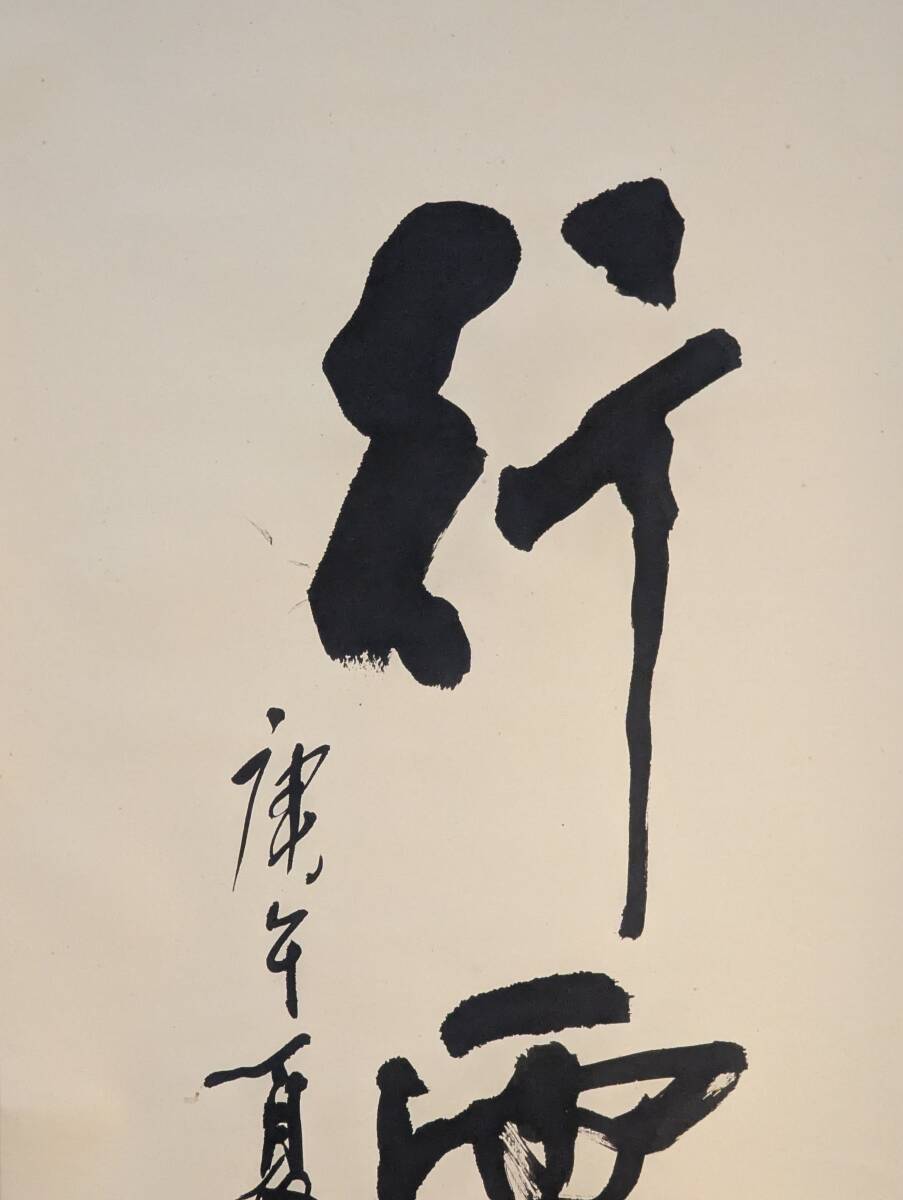 行
庚午夏